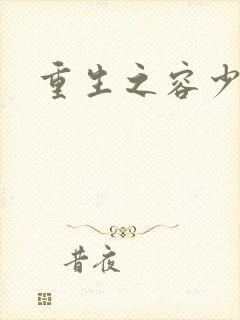 重生之容少
昔夜